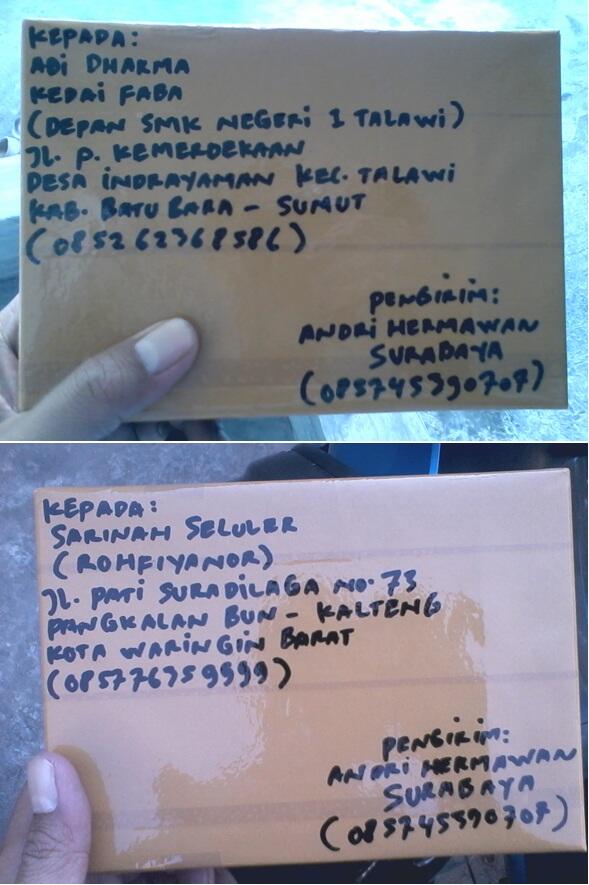 KEPADA:
ADI DHARMA
KEDAI FABA
(DEPAN SMK NEGERI 1 TALAWI)
JL. P. KEMERDEKAAN
DESA INDRAYAMAN KEC. TALAWI
KAB. BATU BARA - SUMUT
(085262368586)
PENGIRIM:
ANDRI HERMAWAN
SURABAYA
(085745390707)
KEPADA:
SARINAH SELULER
(ROHFIYANOR)
JL. PATI SURADILAGA NO. 73
PANGKALAN BUN - KALTENG
KOTA WARINGIN BARAT
(085776759999)
PENGIRIM:
ANDRI HERMAWAN
SURABAYA
(085745390707)